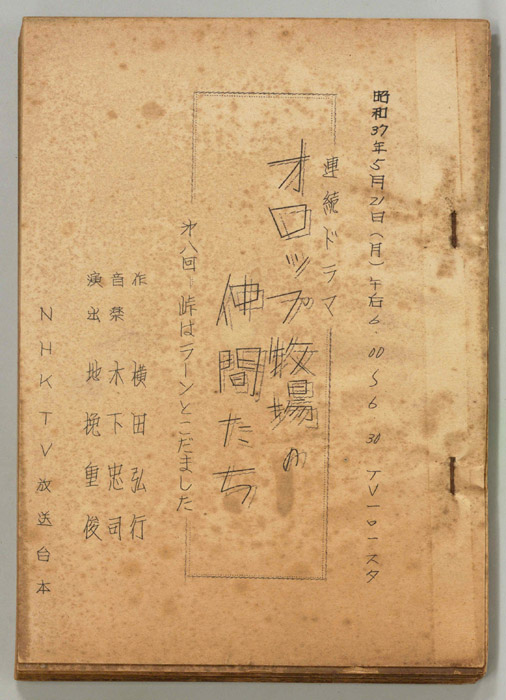 昭和37年5月21日(月)午后6.00〜6.30 TV-ロ-スタ
連続ドラマ
オロップ牧場の
仲間たち
第八回 峠はラーンとこだました
作 横田弘行
音楽 木下忠司
演出 地挽重俊
NHKTV放送台本